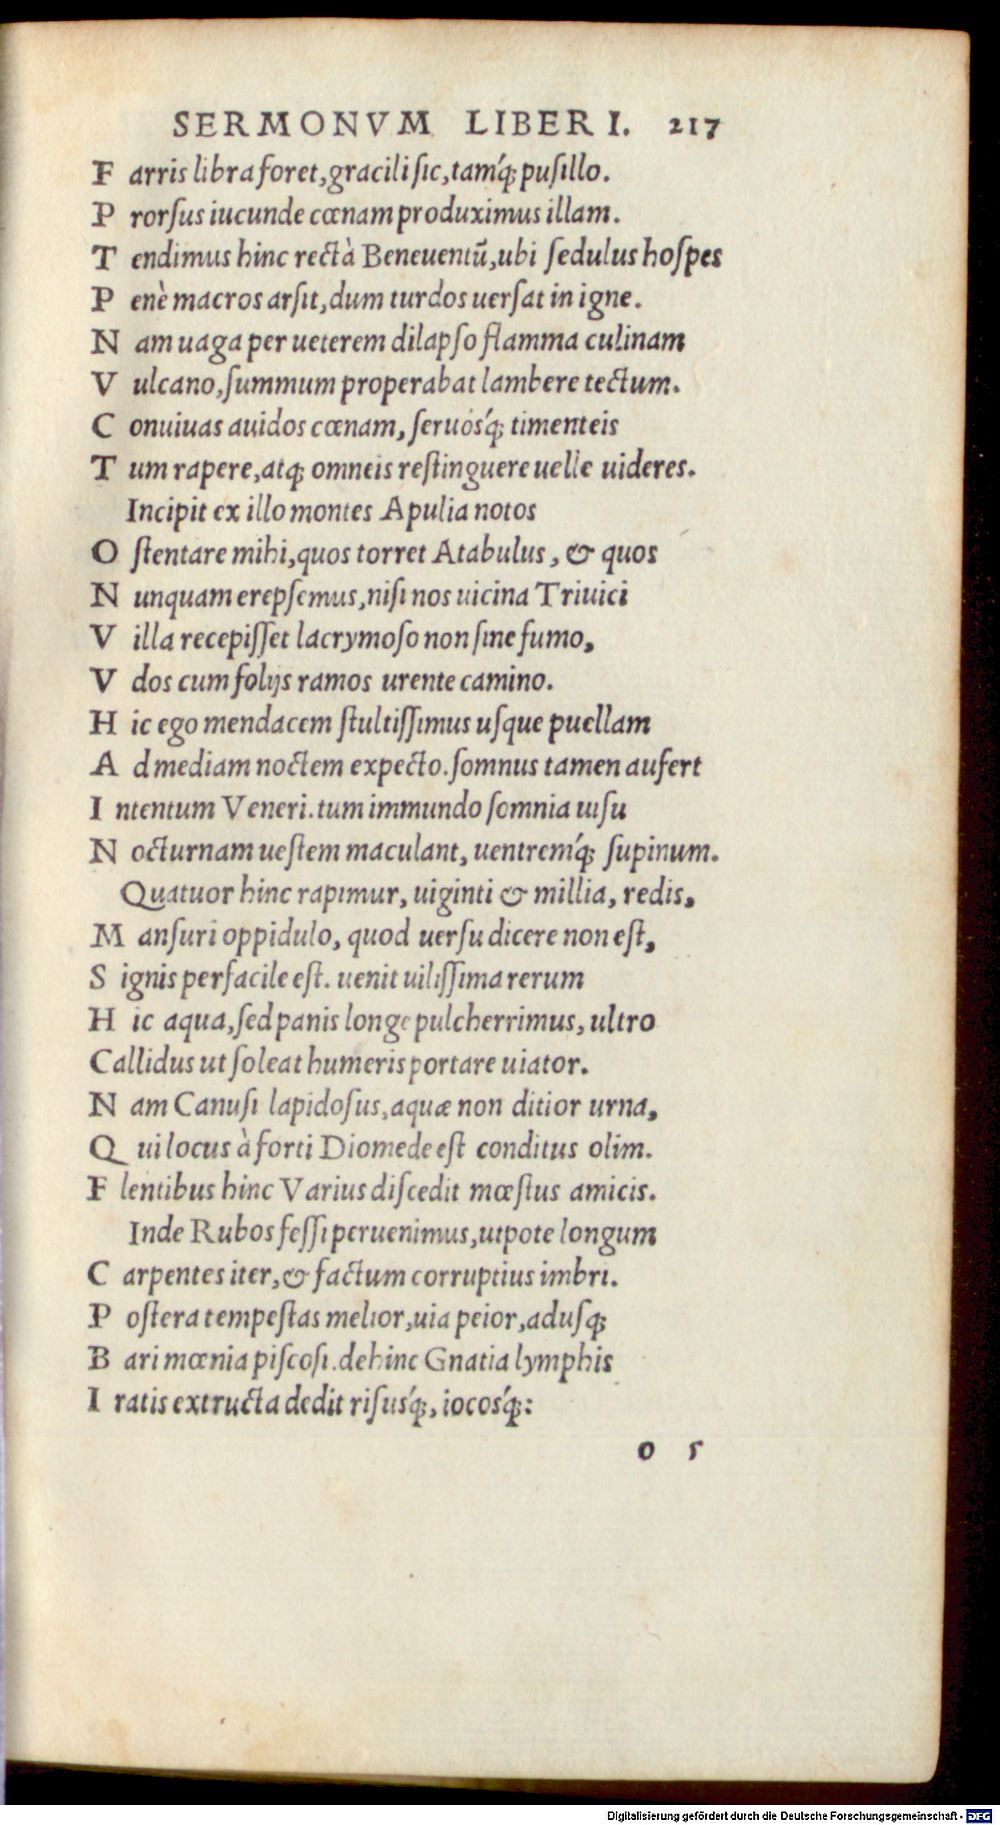 SERMONVM LIBER I. 217
F arris libra foret, gracili sic, tamq́; pusillo.
P rorsus iucunde cœnam produximus illam.
T endimus hinc rectà Beneuentū, ubi sedulus hospes
P enè macros arsit, dum turdos uersat in igne.
N am uaga per ueterem dilapso flamma culinam
V ulcano, summum properabat lambere tectum.
C onuiuas auidos cœnam, seruosq́; timenteis
T um rapere, atq; omneis restinguere uelle uideres.
Incipit ex illo montes Apulia notos
O stentare mihi, quos torret Atabulus, & quos
N unquam erepsemus, nisi nos uicina Triuici
V illa recepisset lacrymoso non sine fumo,
V dos cum folijs ramos urente camino.
H ic ego mendacem stultissimus usque puellam
A d mediam noctem expecto. somnus tamen aufert
I ntentum Veneri. tum immundo somnia uisu
N octurnam uestem maculant, uentremq́; supinum.
Quatuor hinc rapimur, uiginti & millia, redis,
M ansuri oppidulo, quod uersu dicere non est,
S ignis perfacile est. uenit uilissima rerum
H ic aqua, sed panis longe pulcherrimus, ultro
Callidus ut soleat humeris portare uiator.
N am Canusi lapidosus, aquæ non ditior urna,
Q ui locus à forti Diomede est conditus olim.
F lentibus hinc Varius discedit mœstus amicis.
Inde Rubos fessi peruenimus, utpote longum
C arpentes iter, & factum corruptius imbri.
P ostera tempestas melior, uia peior, adusq;
B ari mœnia piscosi. dehinc Gnatia lymphis
I ratis extructa dedit risusq́;, iocosq́;:
o 5
Digitalisierung gefördert durch die Deutsche Forschungsgemeinschaft - DFG